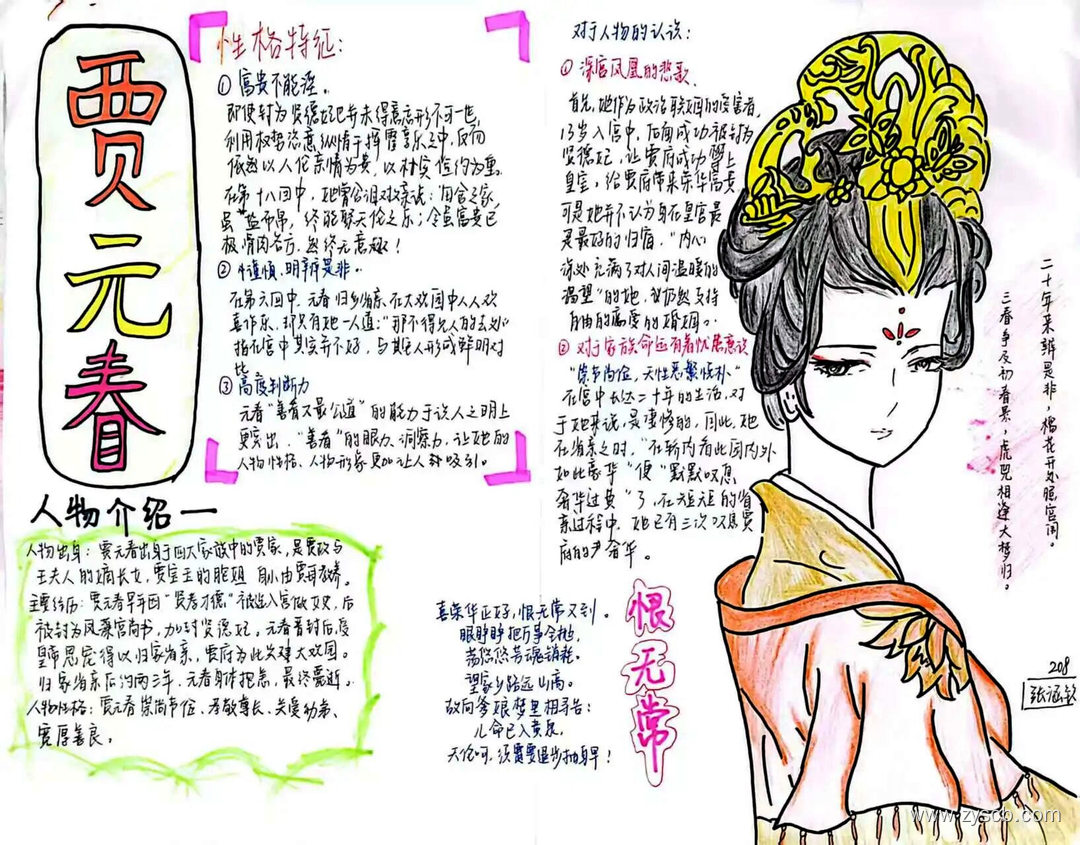 贾元春
性格特征：
① 富贵不能淫。
即使封为贤德妃也并未得意忘形不可一世,
利用权势恣意纵情于挥霍享乐之中,反而
依然以人伦亲情为贵,以朴实俭约为重。
在第十八回中,她曾含泪对亲说：田舍之家,
虽齑盐布帛,终能聚天伦之乐；今虽富贵已
极,骨肉各方,然终无意趣！
② 谨慎,明辨是非。
在第六回中,元春归乡省亲,在大观园中人人欢
喜作乐,却只有她一人道："那不得见人的去处"
指在宫中其实并不好,与其他人形成鲜明对
比
③ 高度判断力
元春"善看又最公道"的能力于识人之明上
更突出."善看"的眼力、洞察力,让她的
人物性格、人物形象更加让人群吸引。
人物介绍一
人物出身：贾元春出身于四大家族中的贾家,是贾政与
王夫人的嫡长女,贾宝玉的胞姐 自小由贾母教养。
主要经历：贾元春早年因"贤孝才德"被选入宫做女史,后
被封为凤藻宫尚书,加封贤德妃。元春晋封后,受
皇帝恩宠得以归家省亲,贾府为此兴建大观园。
归家省亲后约两三年,元春身体抱恙,最终薨逝。
人物性格：贾元春崇尚节俭、孝敬尊长、关爱幼弟、
宽厚善良。
对于人物的认识：
① 深宫凤凰的悲歌
首先,她作为政治联姻的受害者,
13岁入宫中,后面成功被封为
贤德妃,让贾府成功攀上
皇室,给贾府带来荣华富贵
可是她并不认为身在皇宫是
是最好的归宿,"内心
深处充满了对人间温暖的
渴望"的她,我仍然支持
自由的高度的婚姻。
② 对于家族命运有着忧患意识
"崇节尚俭,天性恶繁悦朴"
在宫中长达二十年的生活,对
于她来说,是凄惨的,因此,她
在省亲之时,"在轿内看此园内外
如此豪华"便"默默叹息
奢华过费"了,在短短的省
亲过程中,她已有三次叹息贾
府的奢华。
恨无常
喜荣华正好,恨无常又到。
眼睁睁把万事全抛,
荡悠悠芳魂销耗。
望家乡路远山高。
故向爹娘梦里相寻告：
儿命已入黄泉,
天伦呵,须要退步抽身早！
二十年来辨是非,榴花开处照宫闱。
三春争及初春景,虎兕相逢大梦归。
208
张涵钰
www.zyscb.com